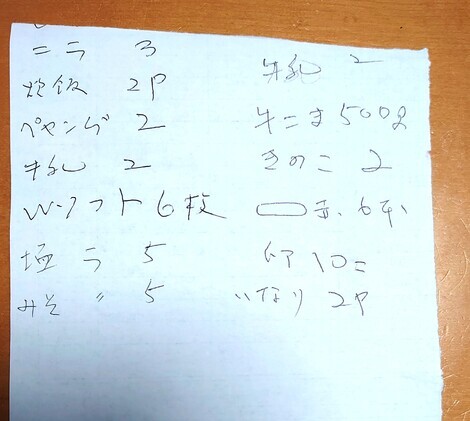 ニラ 3
炒飯 2P
ペヤング 2
牛乳 2
W.ソフト 6枚
塩ラ 5
みそ 〃 5
牛乳 2
牛こま 500g
きのこ 2
6本
10コ
いなり 2P